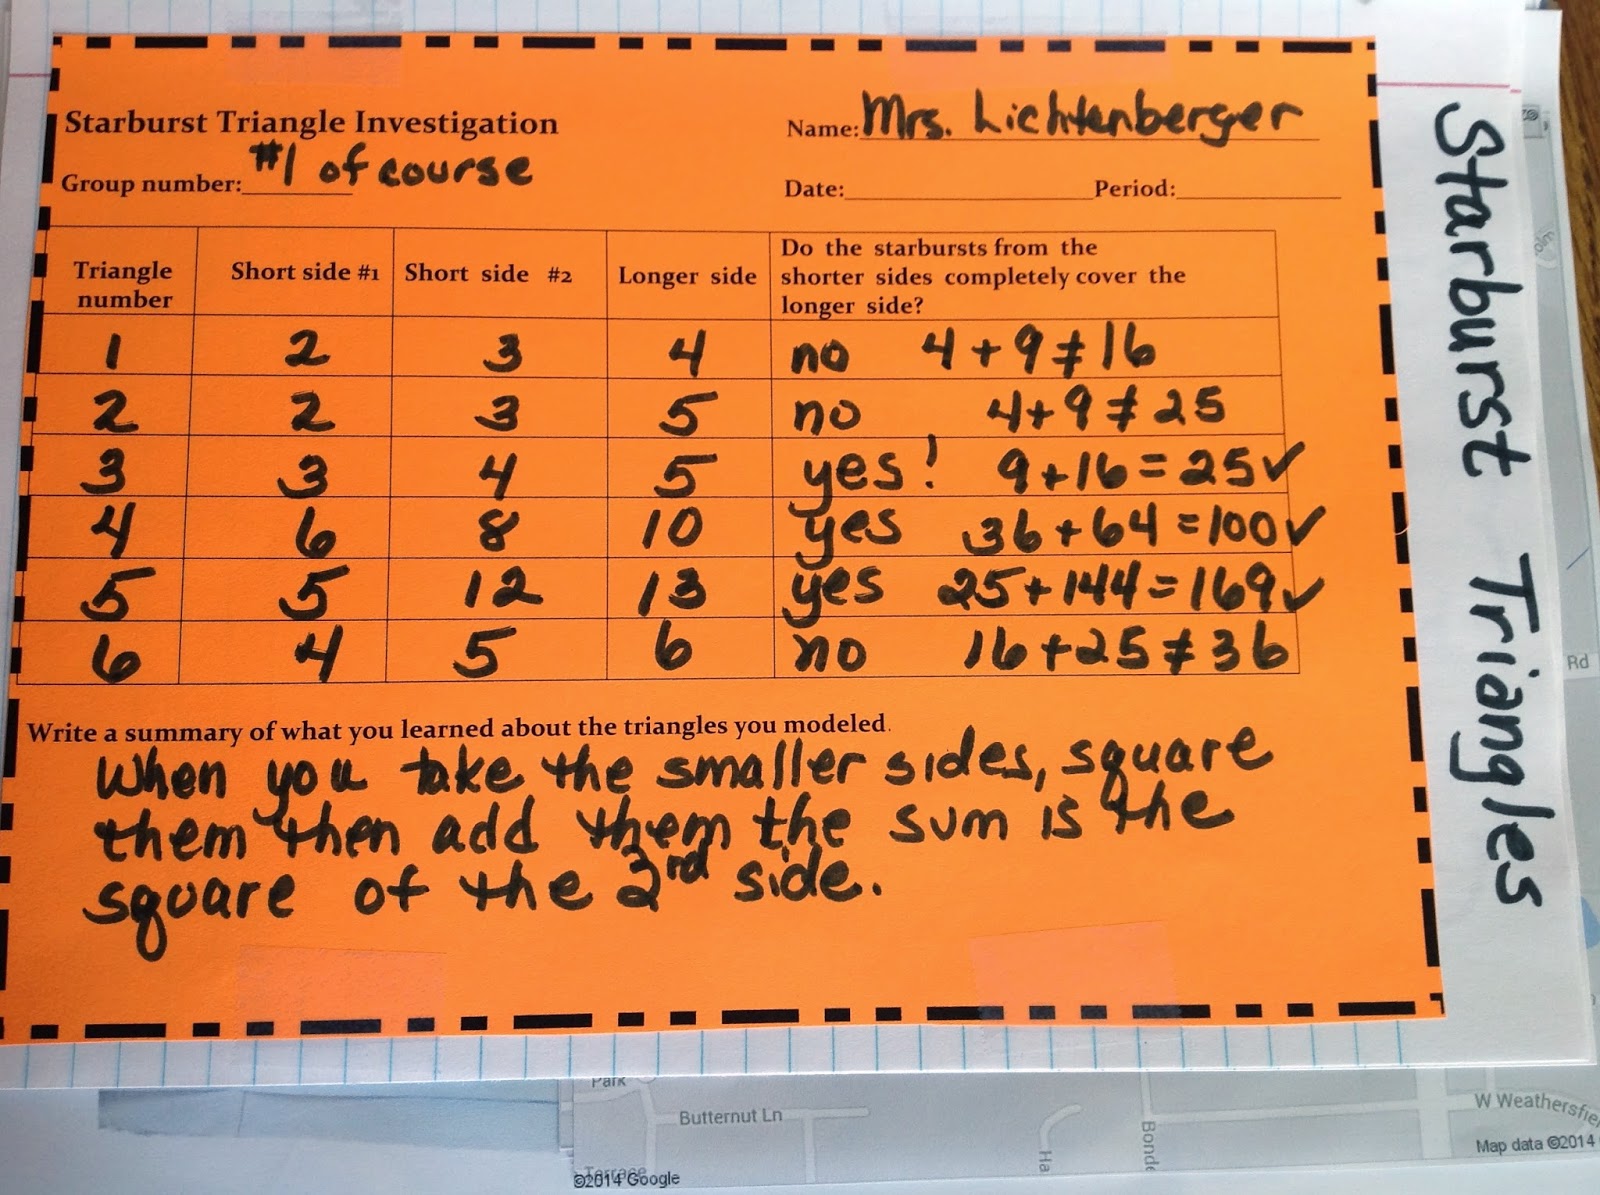 Starburst Triangle Investigation
Name: Mrs. Lichtenberger
Group number: #1 of course
Date: Period:
Triangle number Short side #1 Short side #2 Longer side Do the starbursts from the shorter sides completely cover the longer side?
1 2 3 4 no 4 + 9 ≠ 16
2 2 3 5 no 4 + 9 ≠ 25
3 3 4 5 yes! 9 + 16 = 25 ✓
4 6 8 10 yes 36 + 64 = 100 ✓
5 5 12 13 yes 25 + 144 = 169 ✓
6 4 5 6 no 16 + 25 ≠ 36
Write a summary of what you learned about the triangles you modeled.
When you take the smaller sides, square
them then add them the sum is the
square of the 3rd side.
Starburst Triangles
Rd
Park
Butternut Ln
Terrace
©2014 Google
W Weathersfie
Map data ©2014